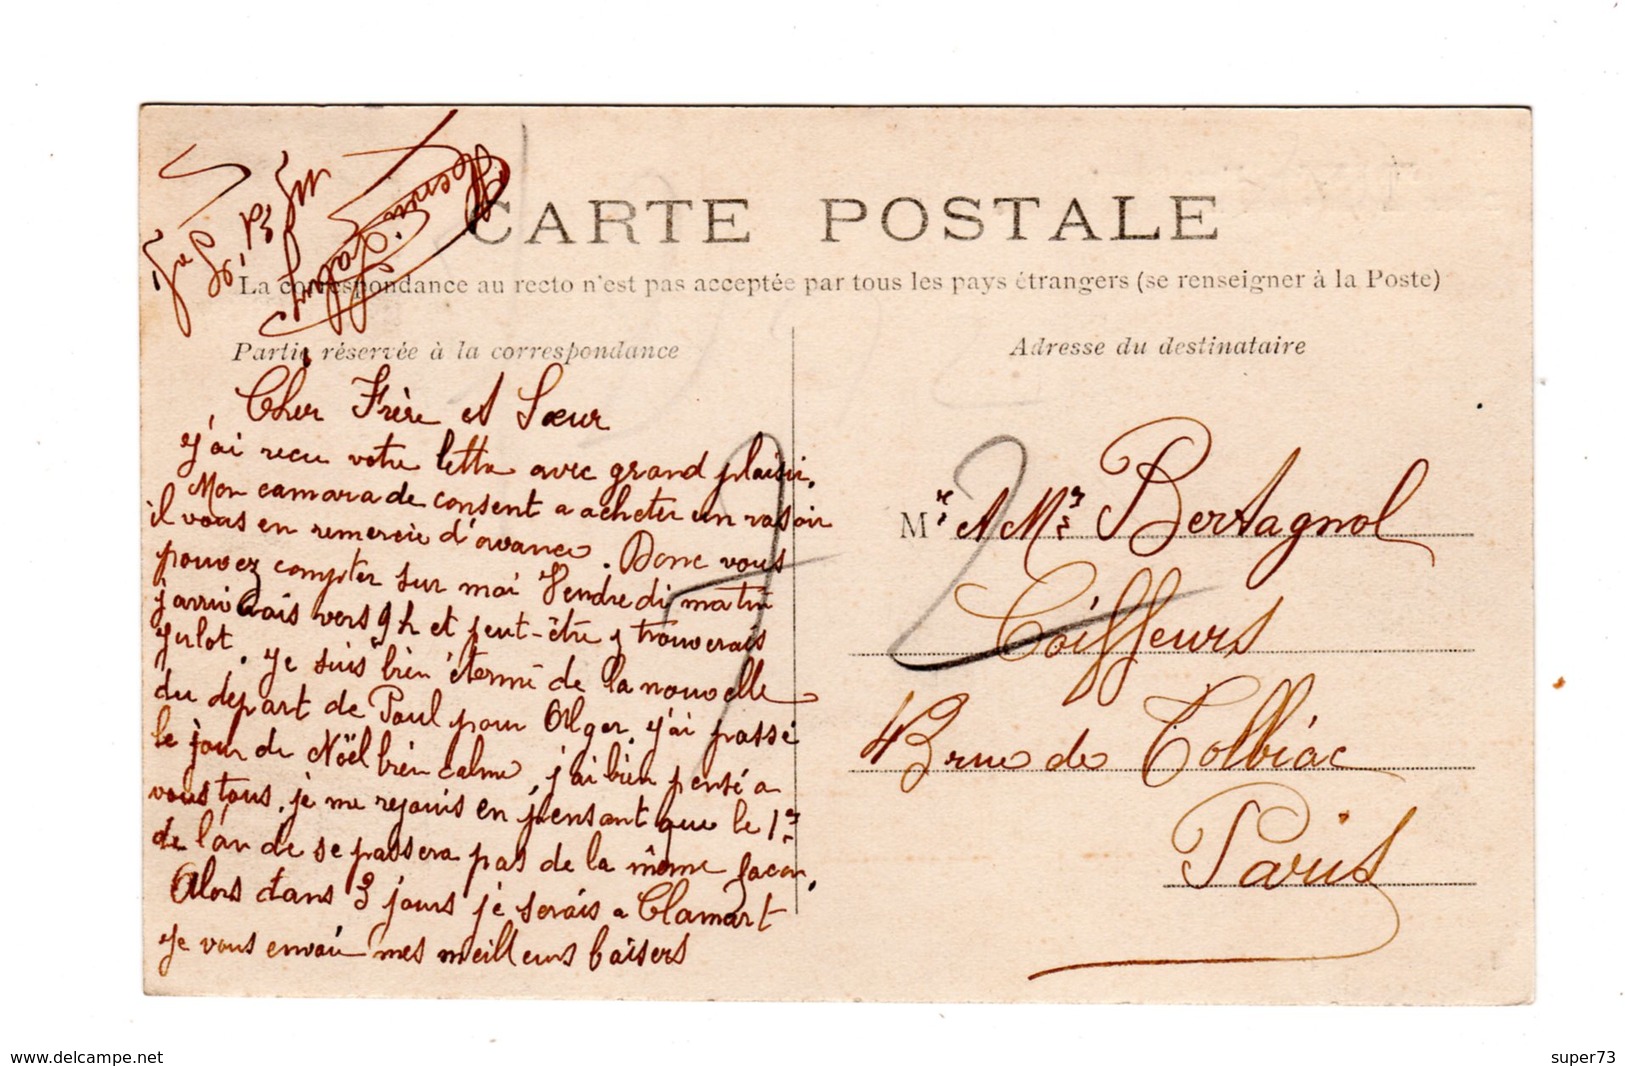 CARTE POSTALE
La correspondance au recto n'est pas acceptée par tous les pays étrangers (se renseigner à la Poste)
Partie réservée à la correspondance
Adresse du destinataire
Cher Frère et Sœur
j'ai recu votre lettre avec grand plaisir.
Mon camarade consent a acheter un rasoir
il vous en remercie d'avance. Donc vous
pouvez compter sur moi Vendredi matin
j'arriverais vers 9h et peut-être y trouverais
Julot. Je suis bien étonné de la nouvelle
du départ de Paul pour Alger. j'ai passé
le jour de Noël bien calme, j'ai bien pensé a
vous tous. je me rejouis en pensant que le 1er
de l'an de se passera pas de la même facon.
Alors dans 3 jours je serais a Clamart
Je vous envoie mes meilleurs baisers
Mr et Mme Bertagnol
Coiffeurs
4B rue de Tolbiac
Paris
www.delcampe.net
super73